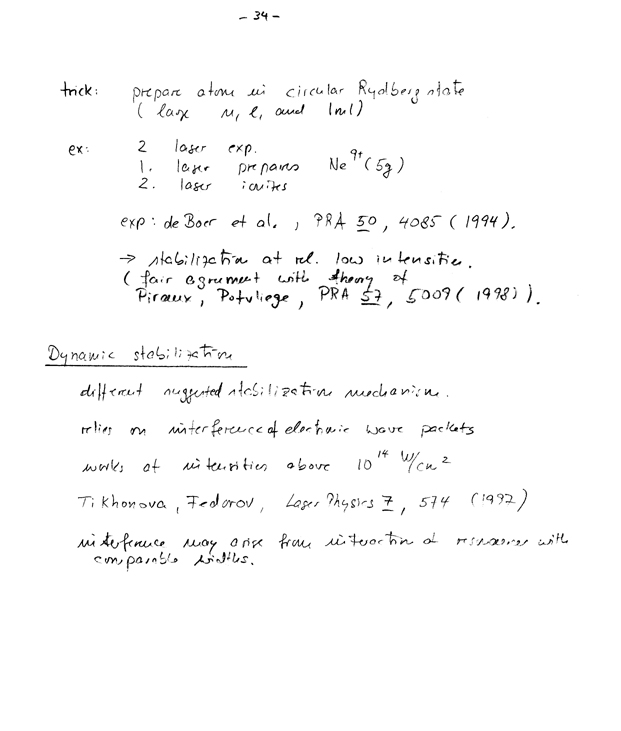 - 34 -
trick: prepare atom in circular Rydberg state
( large n, l, and |m|)
ex: 2 laser exp.
1. laser prepares Ne⁹⁺(5g)
2. laser ionizes
exp: de Boer et al., PRA 50, 4085 (1994).
→ stabilization at rel. low intensities.
( fair agreement with theory of
Piraux, Potvliege, PRA 57, 5009 (1998)).
Dynamic stabilization
different suggested stabilization mechanism.
relies on interference of electronic wave packets
works at intensities above 10¹⁴ W/cm²
Tikhonova, Fedorov, Laser Physics 7, 574 (1997)
interference may arise from interaction of resonances with
comparable widths.